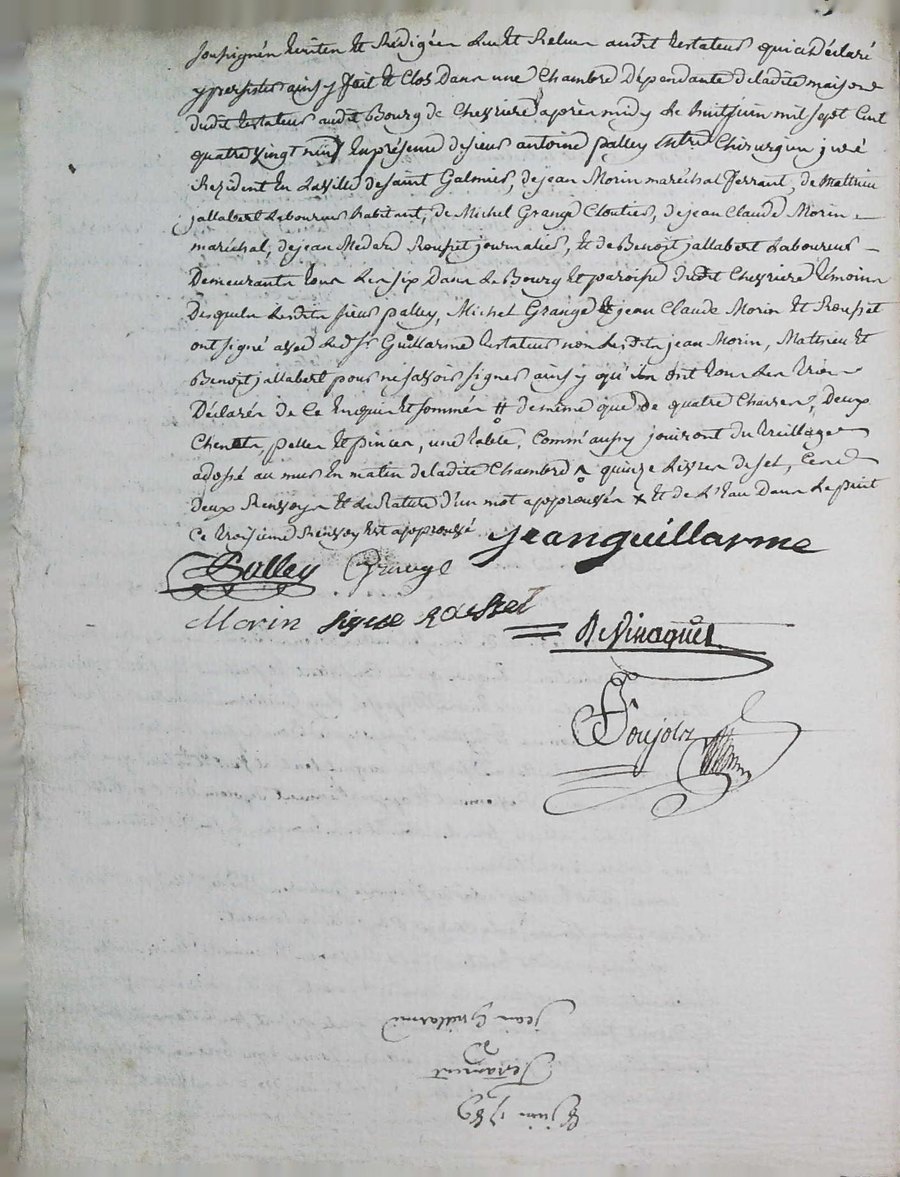 soussignés Ecrites et Rédigées Lues et Relues audit testateur qui a déclaré
y persister ainsy fait et Clos Dans une Chambre Dépendante de ladite maison
dudit testateur audit Bourg de Chevrieres après midy Le huit juin mil sept Cent
quatre vingt neuf En présence de sieur antoine palley Chirurgien juré
Résident En La ville de saint Galmier, de jean Morin maréchal ferrant, de Mathieu
jallabert Laboureur habitant, de Michel Grange Cloutier, de jean Claude Morin
maréchal, de jean Medard Rousset journalier, et de Benoit jallabert Laboureur
Demeurants tous Les six Dans Le Bourg et paroisse dudit Chevrieres témoins
Desquels Lesdits sieur palley, Michel Grange et jean Claude Morin et Rousset
ont signé avec Led. sr. Guillarme testateur non Lesdits jean Morin, Mathieu et
Benoit jallabert pour ne savoir signer ainsy qu'ils ont tous Les trois
Déclarés de Ce Enquis et sommés # de même que de quatre Chaises, Deux
Chenets, pelles et pinces, une table, Comm'aussy jouiront du treillage
adossé au mur En matin de ladite Chambre ^ quinze Livres de sel, Ces
deux Renvoys et La Rature d'un mot approuvés x et de L'Eau Dans Le puit
Ce troisième Renvoy est approuvé jeanguillarme
Palley Grange
Morin signe Rousset
Devinaquet
Poujolz
jean Guillarme
Testament
8 juin 1789